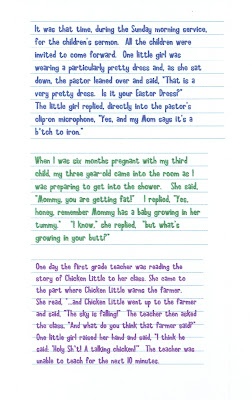 It was that time, during the Sunday morning service,
for the children's sermon. All the children were
invited to come forward. One little girl was
wearing a particularly pretty dress and, as she sat
down, the pastor leaned over and said, "That is a
very pretty dress. Is it your Easter Dress?"
The little girl replied, directly into the pastor's
clip-on microphone, "Yes, and my Mom says it's a
b*tch to iron."
When I was six months pregnant with my third
child, my three year-old came into the room as I
was preparing to get into the shower. She said,
"Mommy, you are getting fat!" I replied, "Yes,
honey, remember Mommy has a baby growing in her
tummy." "I know," she replied, "but what's
growing in your butt?"
One day the first grade teacher was reading the
story of Chicken Little to her class. She came to
the part where Chicken Little warns the farmer.
She read, "...and Chicken Little went up to the farmer
and said, "The sky is falling!" The teacher then asked
the class, "And what do you think that farmer said?"
One little girl raised her hand and said, "I think he
said: 'Holy Sh*t! A talking chicken!'" The teacher was
unable to teach for the next 10 minutes.